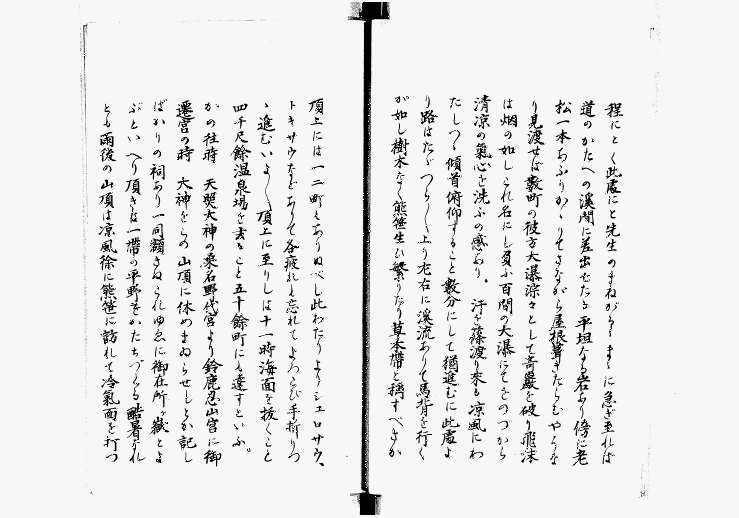 程にとく此處にと先生のまねがるまゝに急ぎ至れば
道のかたへの溪間に差出でたる平垣なる岩あり傍に老
松一本ちふりかゝりてさながら屋根葺きたらむやうな
り見渡せば數町の彼方大瀑淙々として奇巖を破り飛沫
は烟の如しこれ名にし負ふ百間の大瀑にてをのづから
清凉の氣心を洗ふの感あり。汗を篠渡り來る凉風にわ
たしつゝ傾首俯仰すること數分にして猶進むに此處よ
り路はたゞつらしく上り左右に溪流ありて馬背を行く
が如し樹木なく熊笹生ひ繁りたり草本帶と稱すべきか
頂上には一二町もありぬべし此わたりよりシエロサウ、
トキサウなどありて各疲れも忘れてよろこび手折りつ
ゝ進むいよ〳〵頂上に至りしは十一時海面を拔くこと
四千尺餘温泉場を去ること五十餘町にも達すといふ。
かの往時 天照大神の桑名野代宮より鈴鹿忍山宮に御
遷宮の時 大神をこの山頂に休めまゐらせしとか記し
ばかりの祠あり一同額きぬこれゆゑに御在所ヶ嶽とよ
ぶといへり頂きは一帶の平野をかたちづくる酷暑なれ
ども雨後の山頂は凉風徐に熊笹に訪れて冷氣面を打つ